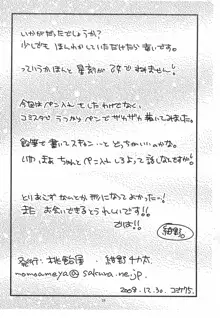 いかがだったでしょうか?
少しでも ほんわかしていただけたら幸いです。
っていうかほんと 星刻が
今回はペン入れ してしたわけでなく、
コミスタで うっかりペンで ザカザカ 描いてみました。
鉛筆で書いてスキャン…と どっちがいいのかな。
いや、まぁ ちゃんとペン入れ しろよって話しなんですが。
とりあえず なんとか 形になってよかったー!
また お会いできるとうれしいです!!
でわ!!
発行:桃飴屋
momoameya@sakura.ne.jp
2008.12.30.